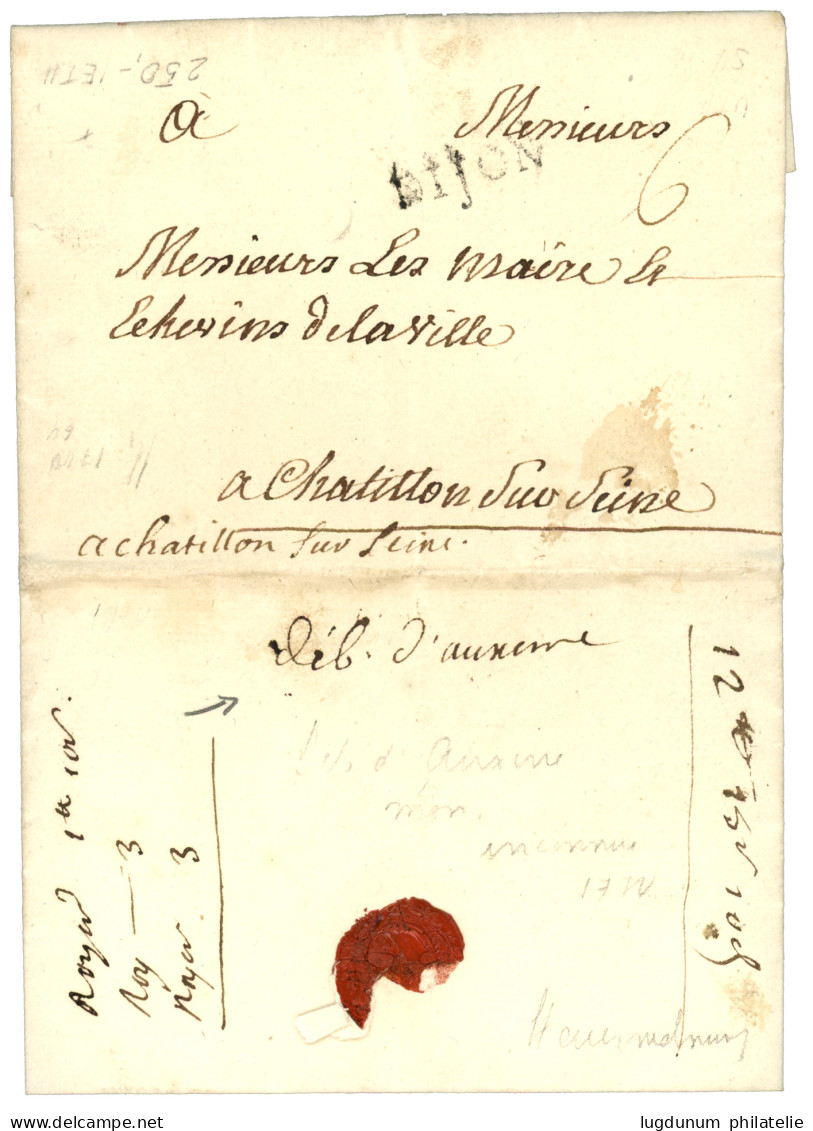 à Messieurs
DIJON
6
Messieurs Les maire et
Echevins de la ville
a Chatillon sur Seine
a chatillon sur Seine.
déb. d'auxerre
Royer 1
Roy — 3
Royer 3
12
déb. d'Auxerre
inconnue
250,-
lugdunum philatelie